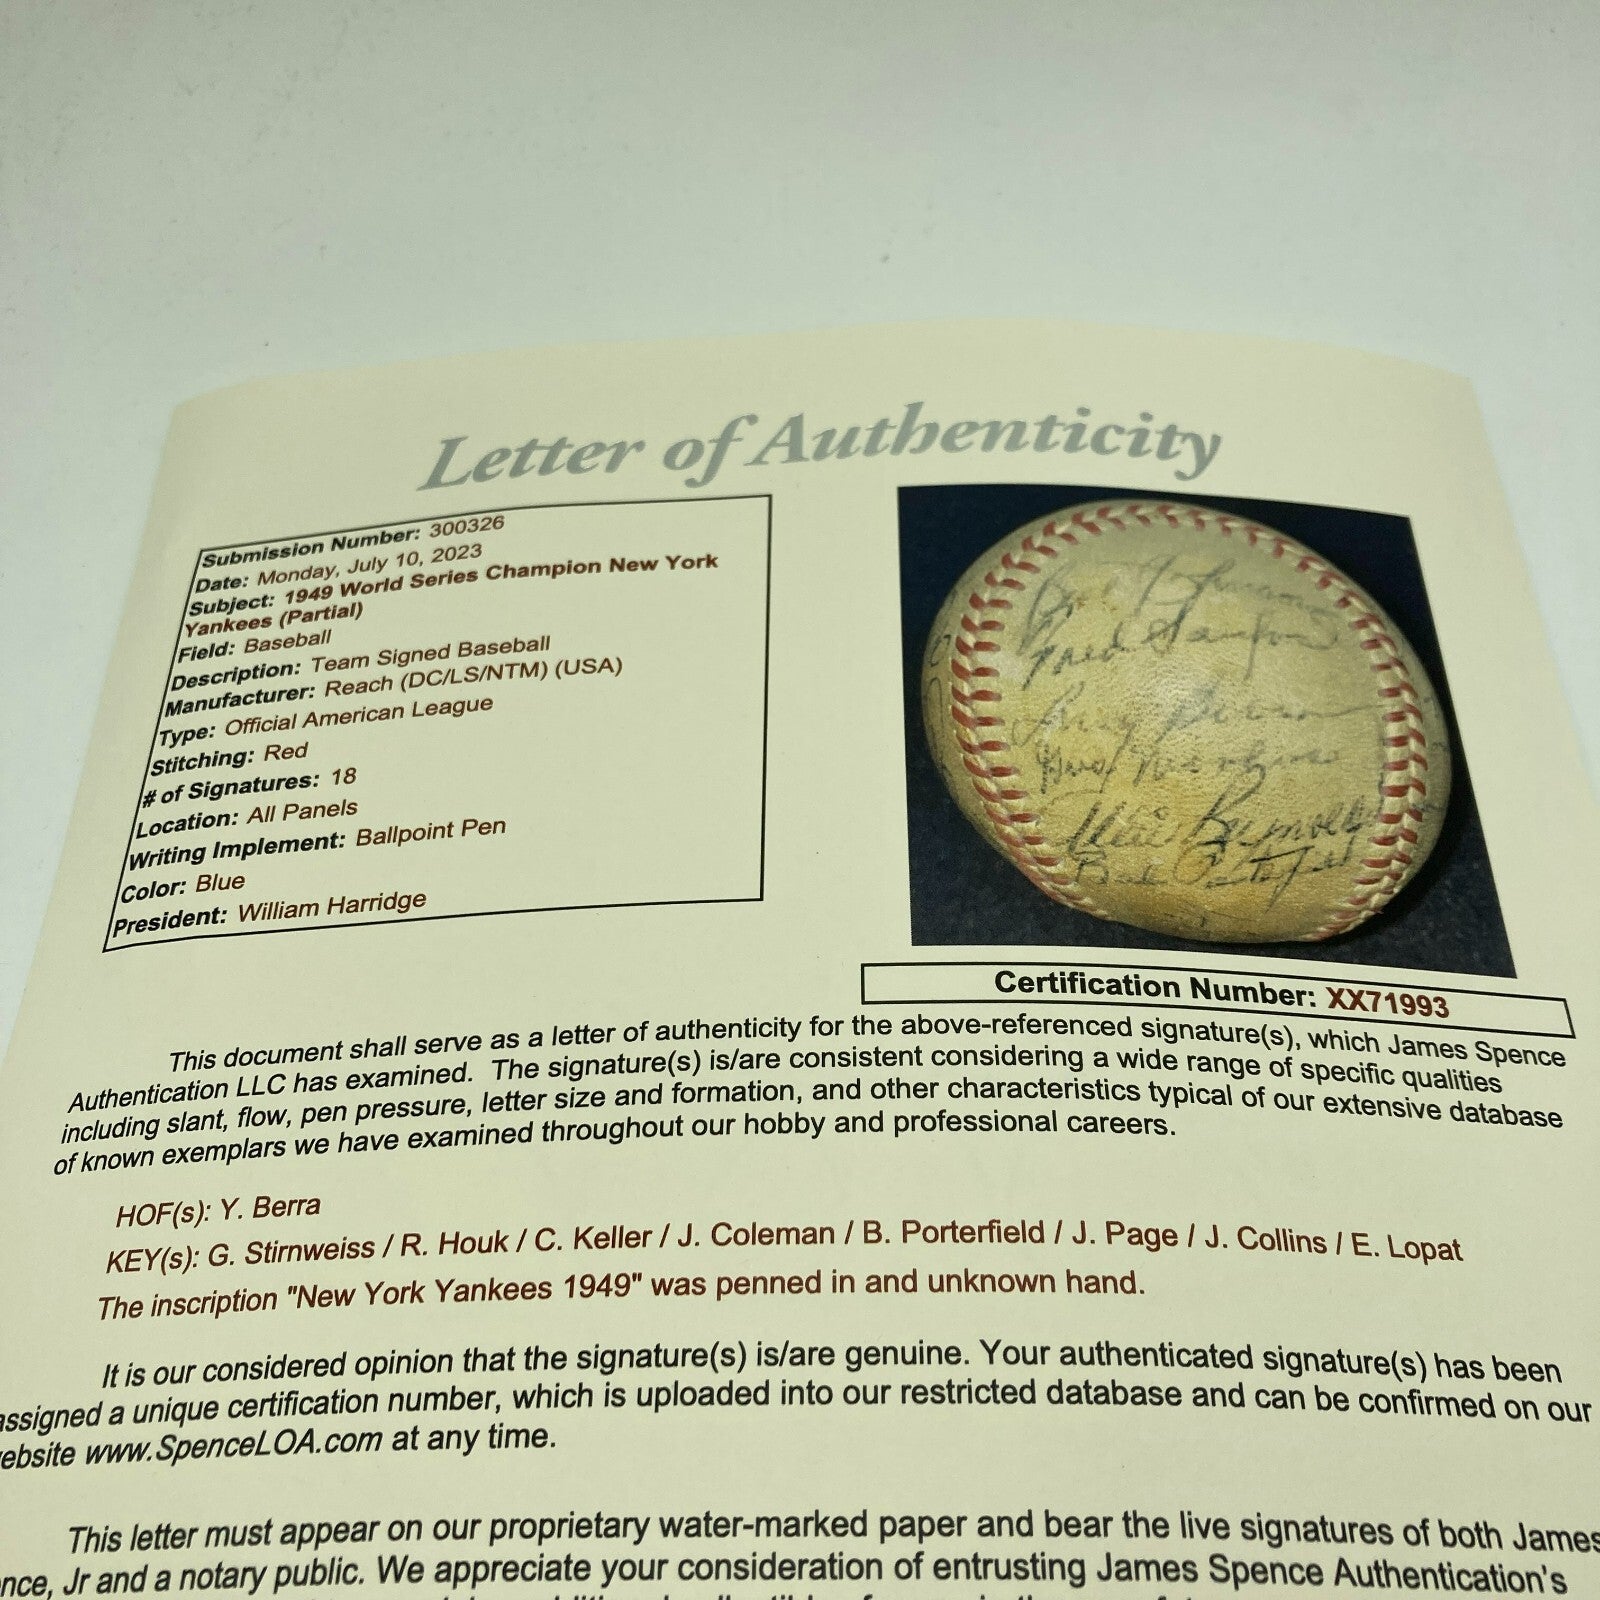 Letter of Authenticity
Submission Number: 300326
Date: Monday, July 10, 2023
Subject: 1949 World Series Champion New York
Yankees (Partial)
Field: Baseball
Description: Team Signed Baseball
Manufacturer: Reach (DC/LS/NTM) (USA)
Type: Official American League
Stitching: Red
# of Signatures: 18
Location: All Panels
Writing Implement: Ballpoint Pen
Color: Blue
President: William Harridge
Fred Sanford
Allie Reynolds
Bob Porterfield
Certification Number: XX71993
This document shall serve as a letter of authenticity for the above-referenced signature(s), which James Spence
Authentication LLC has examined. The signature(s) is/are consistent considering a wide range of specific qualities
including slant, flow, pen pressure, letter size and formation, and other characteristics typical of our extensive database
of known exemplars we have examined throughout our hobby and professional careers.
HOF(s): Y. Berra
KEY(s): G. Stirnweiss / R. Houk / C. Keller / J. Coleman / B. Porterfield / J. Page / J. Collins / E. Lopat
The inscription "New York Yankees 1949" was penned in and unknown hand.
It is our considered opinion that the signature(s) is/are genuine. Your authenticated signature(s) has been
assigned a unique certification number, which is uploaded into our restricted database and can be confirmed on our
ebsite www.SpenceLOA.com at any time.
This letter must appear on our proprietary water-marked paper and bear the live signatures of both James
nce, Jr and a notary public. We appreciate your consideration of entrusting James Spence Authentication's